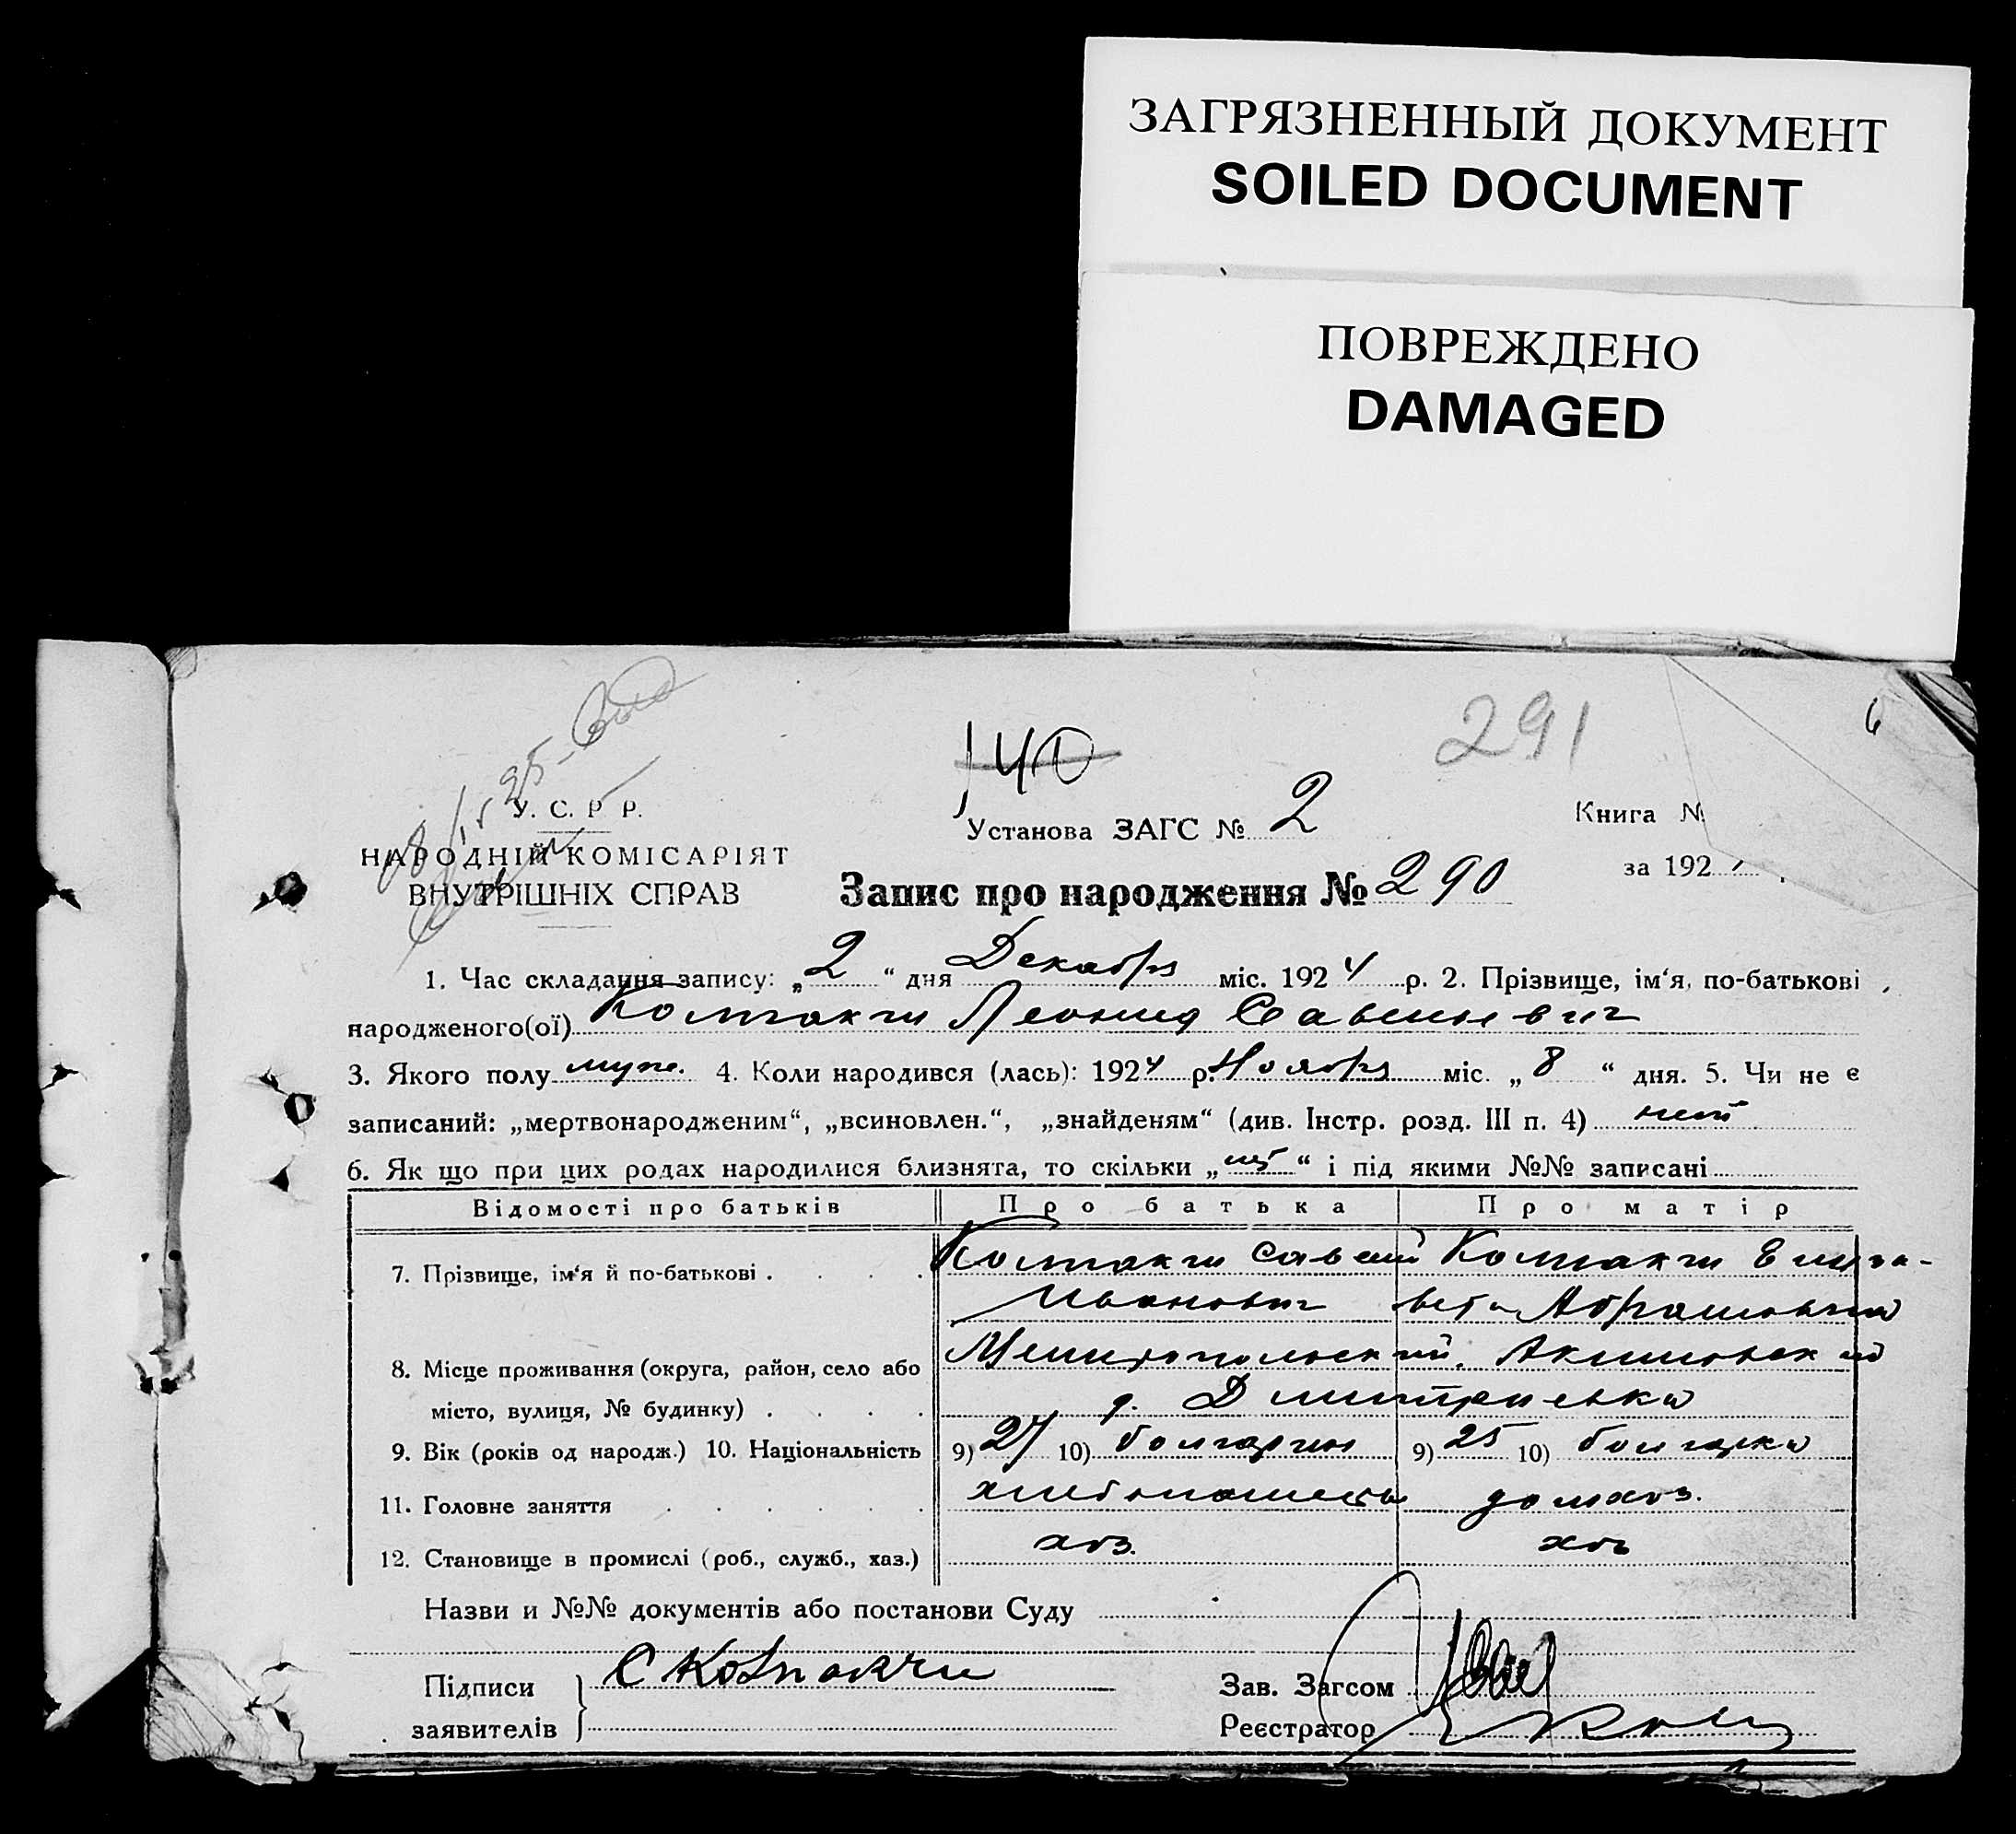 ЗАГРЯЗНЕННЫЙ ДОКУМЕНТ
SOILED DOCUMENT
ПОВРЕЖДЕНО
DAMAGED
291
140
У. С. Р Р.
НАРОДНІЙ КОМІСАРІЯТ
ВНУТРІШНІХ СПРАВ
Установа ЗАГС № 2
Книга №
за 192
Запис про народження № 290
1. Час складання запису: „2“ дня Декабря міс. 1924 р. 2. Прізвище, ім‘я, по-батькові
народженого(ої) Колпакчи Леонид Савельевич
3. Якого полу муж. 4. Коли народився (лась): 1924 р. Ноября міс. „8“ дня. 5. Чи не є
записаний: „мертвонародженим“, „всиновлен.“, „знайденям“ (див. Інстр. розд. III п. 4) нет
6. Як що при цих родах народилися близнята, то скільки „ “ і під якими №№ записані
Відомості про батьків Про батька Про матір
7. Прізвище, ім‘я й по-батькові . . . . Колпакчи Савелий Колпакчи Елиза-
Иванович вета Абрамовна
8. Місце проживання (округа, район, село або Мелитопольский, Акимовский
місто, вулиця, № будинку) . . . . д. Дмитриевка
9. Вік (років од народж.) 10. Національність 9) 27 10) болгарин 9) 25 10) болгарка
11. Головне заняття . . . . . . хлебопашество домхоз.
12. Становище в промислі (роб., служб., хаз.) хоз. хоз
Назви и №№ документів або постанови Суду
Підписи С Колпакчи
заявителів
Зав. Загсом
Реєстратор